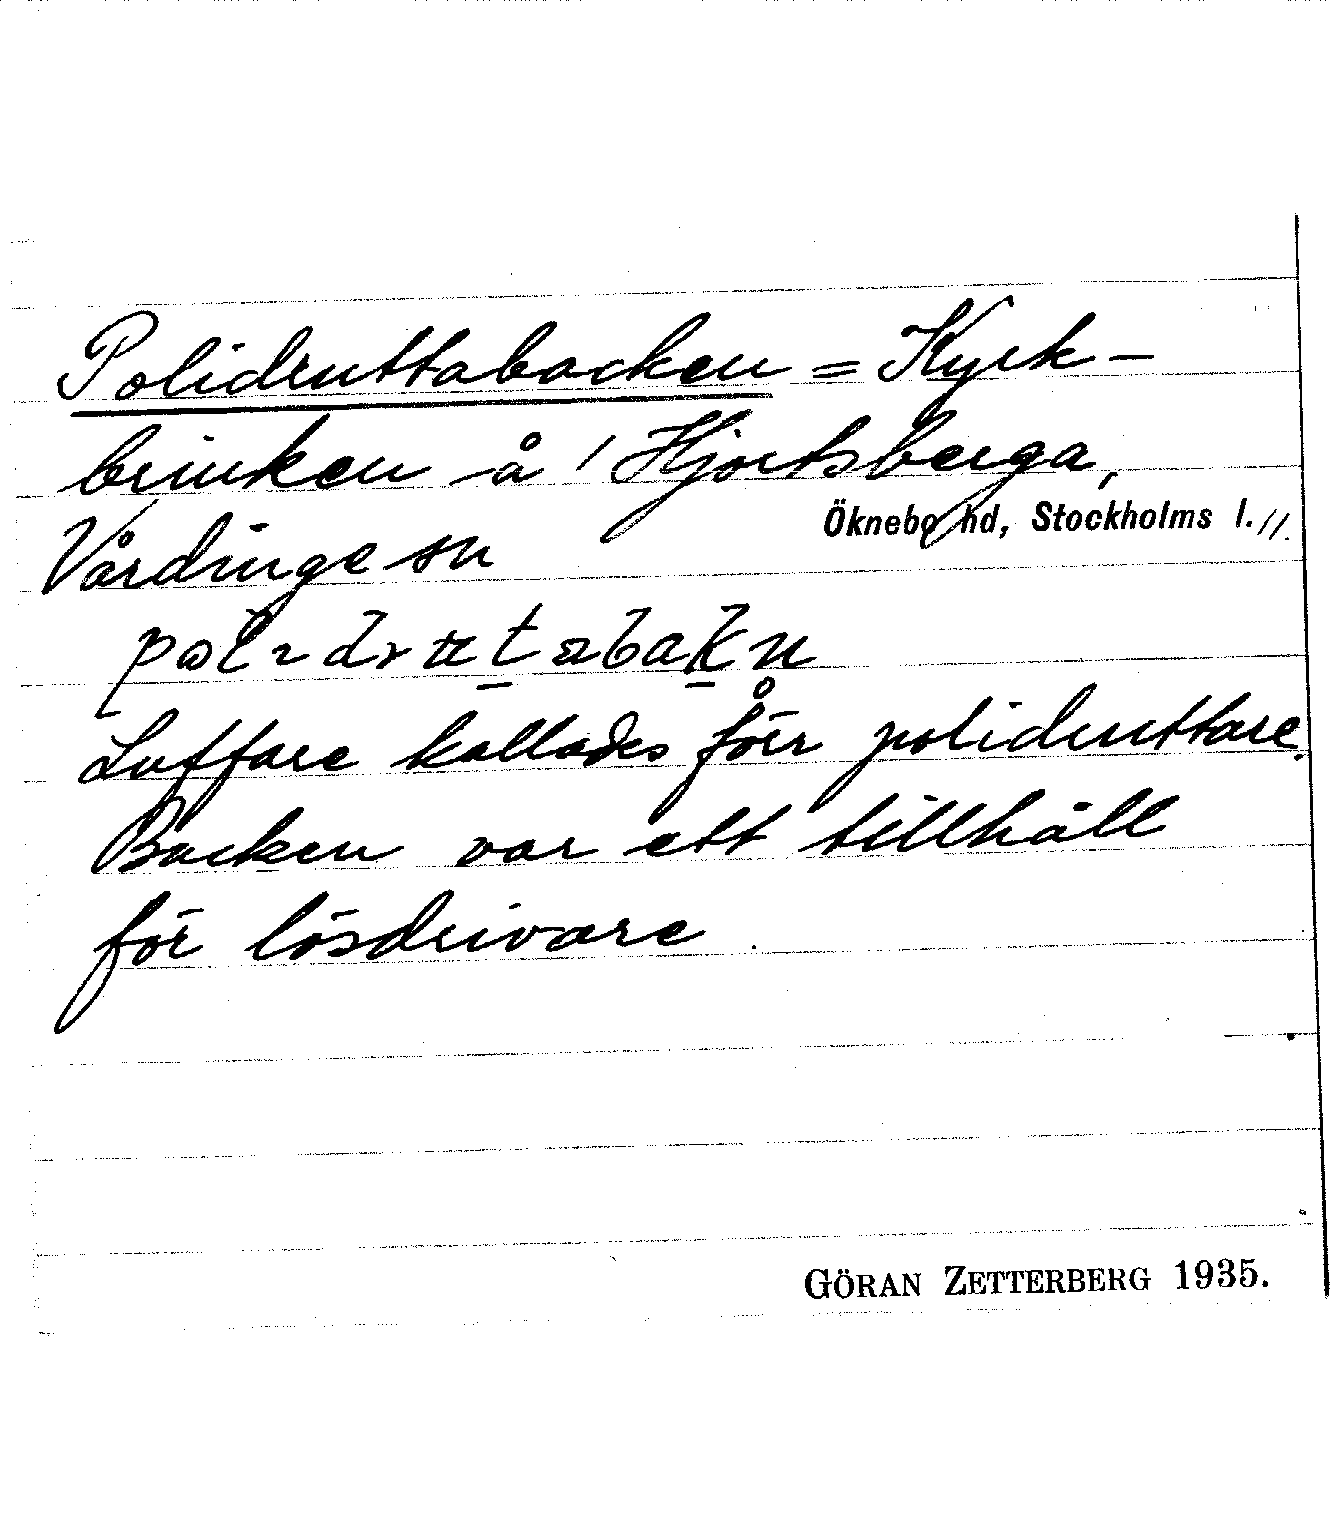 Polidruttabacken = Kyrk-
brinken å Hjortsberga,
Öknebo hd, Stockholms l.
Vårdinge sn
Luffare kallades förr polidruttare.
Backen var ett tillhåll
för lösdrivare.
GÖRAN ZETTERBERG 1935.